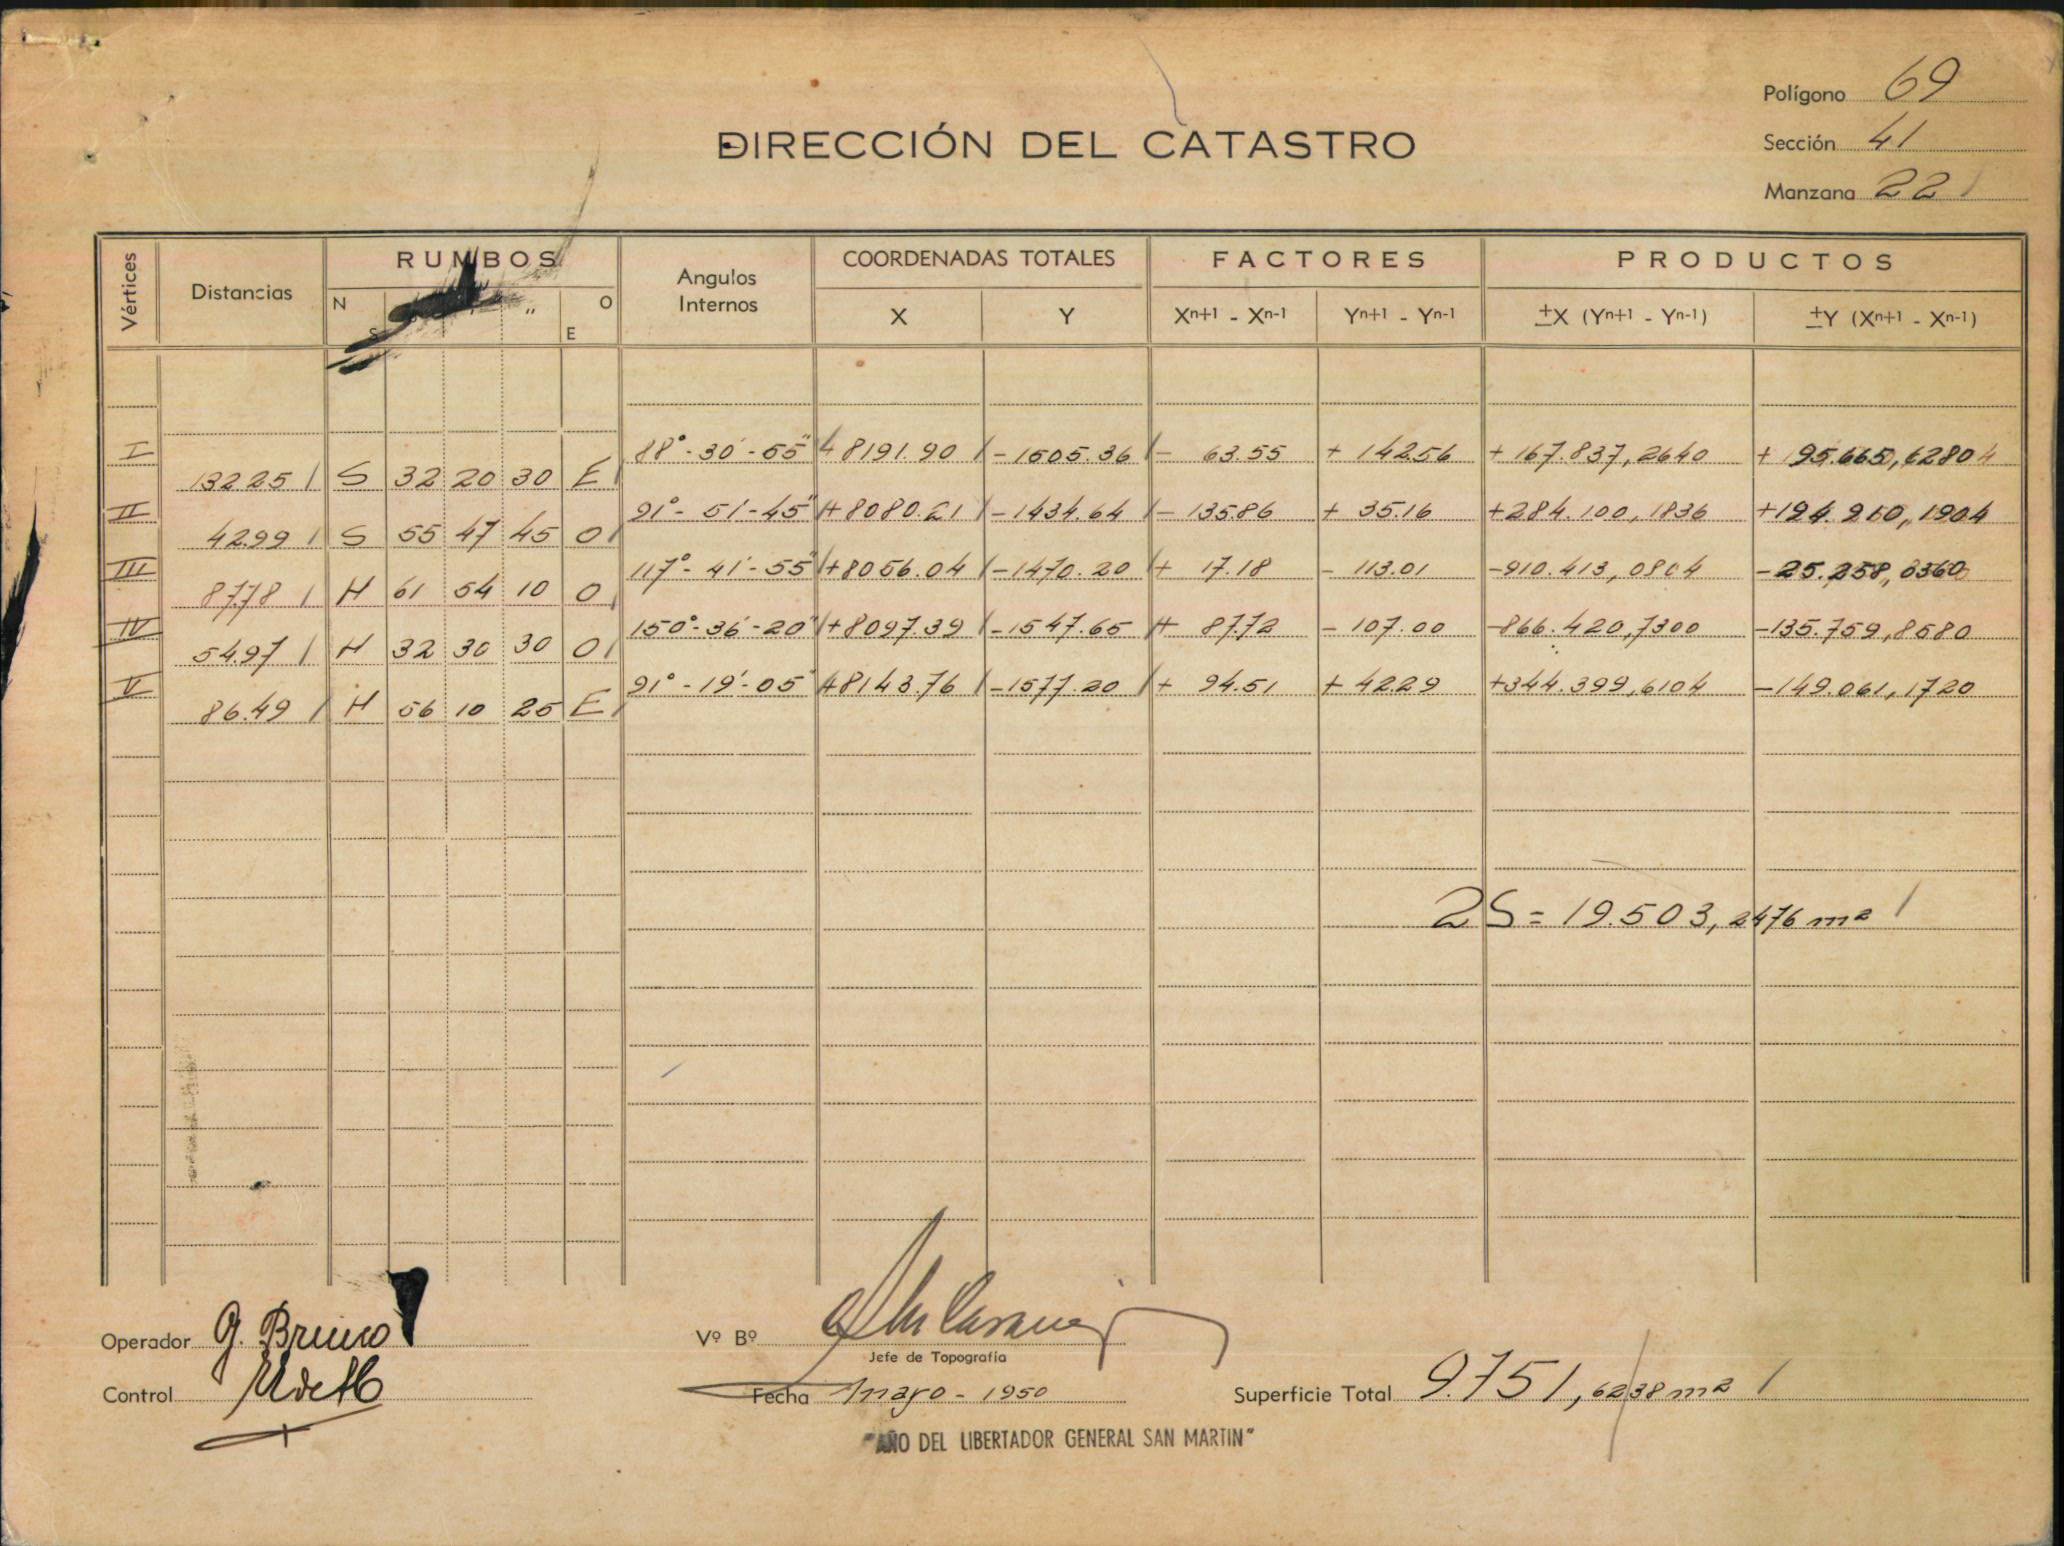 Polígono 69
DIRECCIÓN DEL CATASTRO
Sección 41
Manzana 22
Vértices Distancias RUMBOS Angulos Internos COORDENADAS TOTALES FACTORES PRODUCTOS
N S " O E X Y Xn+1 - Xn-1 Yn+1 - Yn-1 ±X (Yn+1 - Yn-1) ±Y (Xn+1 - Xn-1)
I 88°-30'-55" +8191.90 -1505.36 - 63.55 + 142.56 +167.837,2640 + 95.665,6280
132.25 S 32 20 30 E
II 91°-51'-45" +8080.21 -1434.64 - 135.86 + 35.16 +284.100,1836 +194.910,1904
42.99 S 55 47 45 O
III 117°-41'-55" +8056.04 -1470.20 + 17.18 - 113.01 -910.413,0804 -25.258,0360
87.78 N 61 54 10 O
IV 150°-36'-20" +8097.39 -1547.65 + 87.72 - 107.00 -866.420,7300 -135.759,8580
54.97 N 32 30 30 O
V 91°-19'-05" +8143.76 -1577.20 + 94.51 + 42.29 +344.399,6104 -149.061,1720
86.49 N 56 10 25 E
2S = 19.503,2476 m2
Operador G. Bruno
Vº Bº
Jefe de Topografía
Control
Fecha mayo - 1950
Superficie Total 9.751,6238 m2
"AÑO DEL LIBERTADOR GENERAL SAN MARTIN"